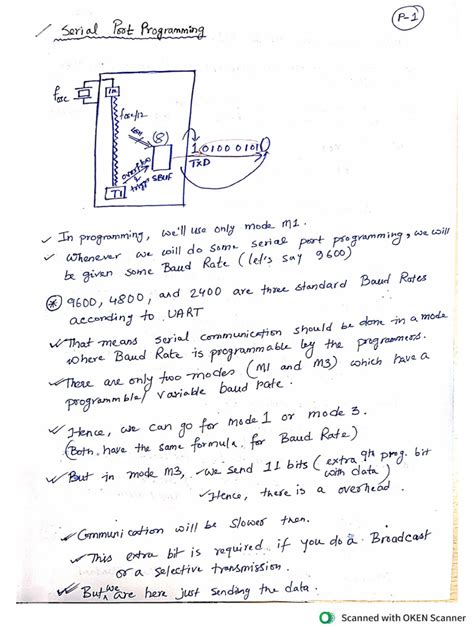 P-1
Serial Port Programming
fosc
1/12
fosc/12
(8)
T1
overflow
SBUF
1 01000101 0
TXD
In programming, we'll use only mode M1.
Whenever we will do some serial port programming, we will
be given some Baud Rate (let's say 9600)
9600, 4800, and 2400 are three standard Baud Rates
according to UART
That means serial communication should be done in a mode
where Baud Rate is programmable by the programmers.
There are only two modes (M1 and M3) which have a
programmble/ variable baud rate.
Hence, we can go for mode 1 or mode 3.
(Both have the same formula for Baud Rate)
But in mode M3, we send 11 bits (extra 9th prog. bit
with data)
Hence, there is a overhead.
Communication will be slower then.
This extra bit is required if you do a Broadcast
or a selective transmission.
But we are here just sending the data.
Scanned with OKEN Scanner